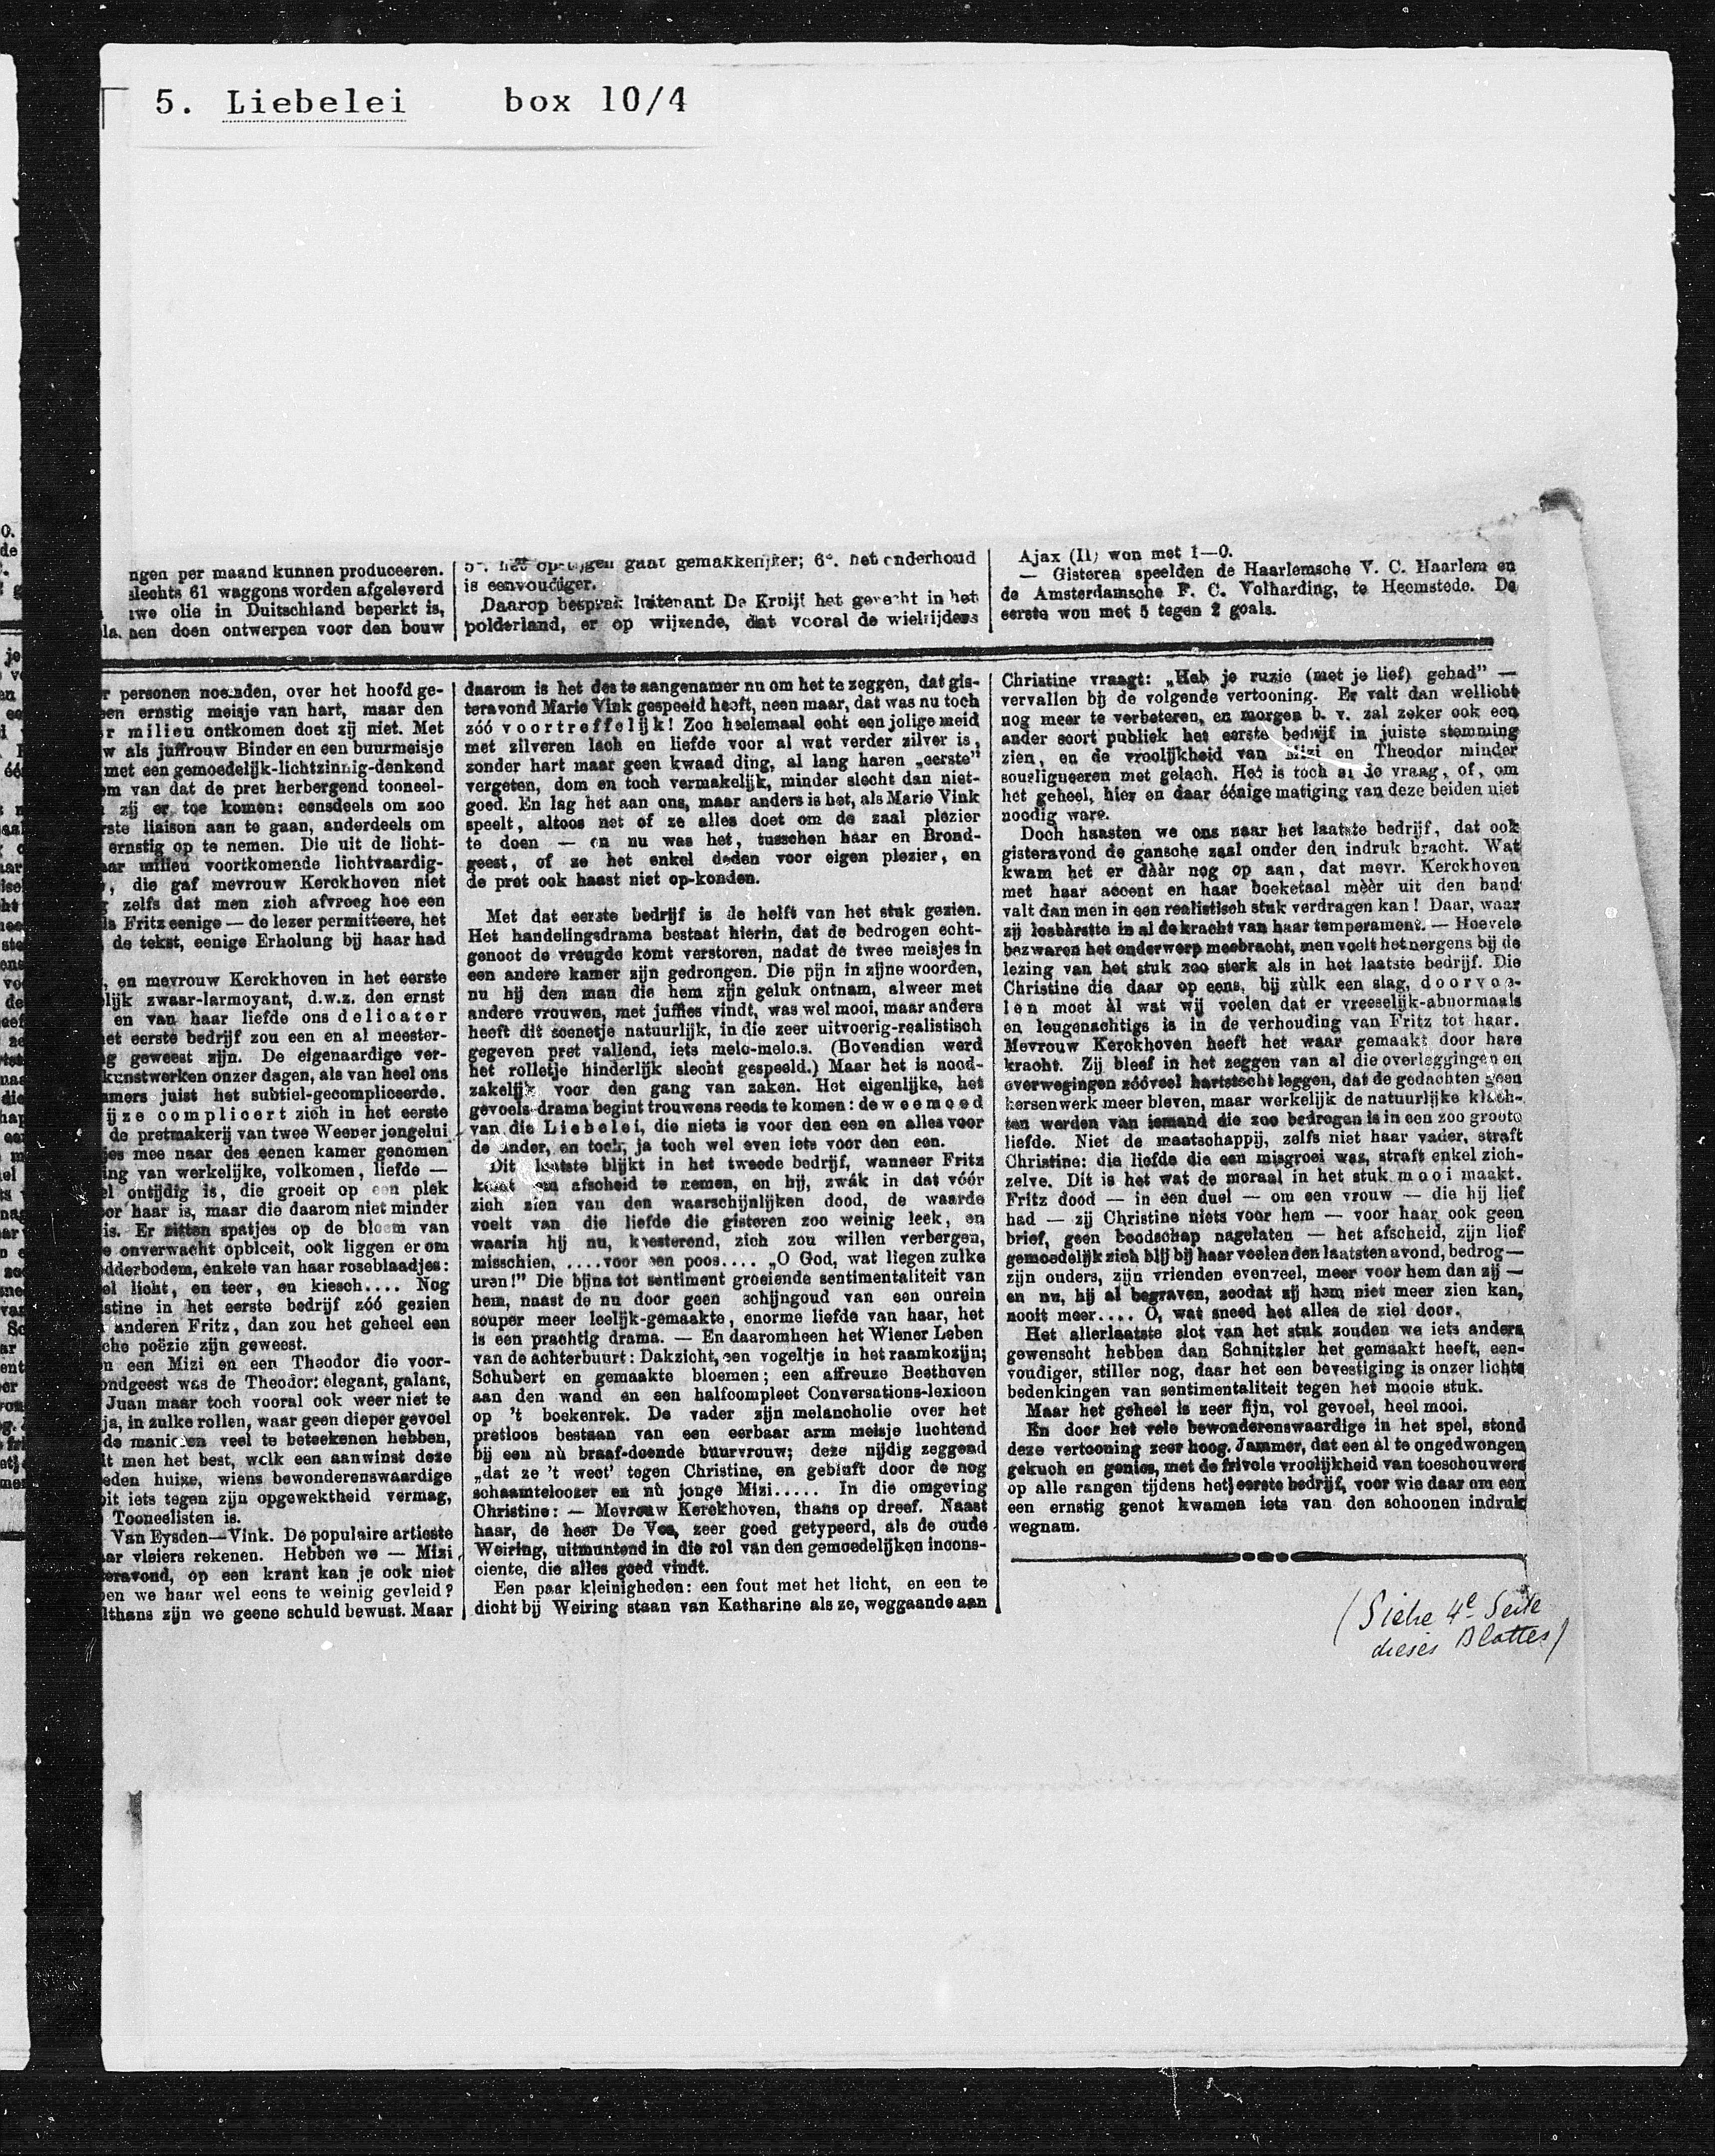 5. Liebelei box 10/4
ngen per maand kunnen produceeren.
slechts 61 waggons worden afgeleverd
uwe olie in Duitschland beperkt is,
nen doen ontwerpen voor den bouw
gaat gemakkelijker; 6°. het onderhoud
is eenvoudiger.
Daarop besprak luitenant De Kruijf het gevecht in het
polderland, er op wijzende, dat vooral de wielrijders
Ajax (II) won met 1—0.
— Gisteren speelden de Haarlemsche V. C. Haarlem en
de Amsterdamsche F. C. Volharding, te Heemstede. De
eerste won met 5 tegen 2 goals.
r personen noemden, over het hoofd ge-
een ernstig meisje van hart, maar den
r milieu ontkomen doet zij niet. Met
w als juffrouw Binder en een buurmeisje
met een gemoedelijk-lichtzinnig-denkend
om van dat de pret herbergend tooneel-
zij er toe komen: eensdeels om zoo
rste liaison aan te gaan, anderdeels om
ernstig op te nemen. Die uit de licht-
aar milieu voortkomende lichtvaardig-
, die gaf mevrouw Kerckhoven niet
zelfs dat men zich afvroeg hoe een
ls Fritz eenige — de lezer permitteere, het
de tekst, eenige Erholung bij haar had
, en mevrouw Kerckhoven in het eerste
lijk zwaar-larmoyant, d.w.z. den ernst
en van haar liefde ons delicater
et eerste bedrijf zou een en al meester-
g geweest zijn. De eigenaardige ver-
kunstwerken onzer dagen, als van heel ons
mers juist het subtiel-gecompliceerde.
ijze compliceert zich in het eerste
de pretmakerij van twee Weener jongelui
jes mee naar des eenen kamer genomen
ing van werkelijke, volkomen, liefde —
el ontijdig is, die groeit op een plek
or haar is, maar die daarom niet minder
is. Er zitten spatjes op de bloem van
e onverwacht opbloeit, ook liggen er om
dderbodem, enkele van haar roseblaadjes:
el licht, en teer, en kiesch.... Nog
stine in het eerste bedrijf zóó gezien
anderen Fritz, dan zou het geheel een
che poëzie zijn geweest.
n een Mizi en een Theodor die voor-
ondgeest was de Theodor: elegant, galant,
Juan maar toch vooral ook weer niet te
ja, in zulke rollen, waar geen dieper gevoel
de manieren veel te beteekenen hebben,
lt men het best, welk een aanwinst deze
eden huize, wiens bewonderenswaardige
oit iets tegen zijn opgewektheid vermag,
Tooneelisten is.
Van Eysden—Vink. De populaire artieste
ar vleiers rekenen. Hebben we — Mizi
teravond, op een krant kan je ook niet
en we haar wel eens te weinig gevleid?
lthans zijn we geene schuld bewust. Maar
daarom is het des te aangenamer nu om het te zeggen, dat gis-
teravond Marie Vink gespeeld heeft, neen maar, dat was nu toch
zóó voortreffelijk! Zoo heelemaal echt een jolige meid
met zilveren lach en liefde voor al wat verder zilver is,
zonder hart maar geen kwaad ding, al lang haren „eerste”
vergeten, dom en toch vermakelijk, minder slecht dan niet-
goed. En lag het aan ons, maar anders is het, als Marie Vink
speelt, altoos net of ze alles doet om de zaal plezier
te doen — en nu was het, tusschen haar en Brond-
geest, of ze het enkel deden voor eigen plezier, en
de pret ook haast niet op-konden.
Met dat eerste bedrijf is de helft van het stuk gezien.
Het handelingsdrama bestaat hierin, dat de bedrogen echt-
genoot de vreugde komt verstoren, nadat de twee meisjes in
een andere kamer zijn gedrongen. Die pijn in zijne woorden,
nu hij den man die hem zijn geluk ontnam, alweer met
andere vrouwen, met juffies vindt, was wel mooi, maar anders
heeft dit scenetje natuurlijk, in die zeer uitvoerig-realistisch
gegeven pret vallend, iets melo-melo.s. (Bovendien werd
het rolletje hinderlijk slecht gespeeld.) Maar het is nood-
zakelijk voor den gang van zaken. Het eigenlijke, het
gevoels-drama begint trouwens reeds te komen: de weemoed
van die Liebelei, die niets is voor den een en alles voor
de ander, en toch, ja toch wel even iets voor den een.
Dit laatste blijkt in het tweede bedrijf, wanneer Fritz
komt om afscheid te nemen, en hij, zwák in dat vóór
zich zien van den waarschijnlijken dood, de waarde
voelt van die liefde die gisteren zoo weinig leek, en
waarin hij nu, koesterend, zich zou willen verbergen,
misschien, ....voor een poos.... „O God, wat liegen zulke
uren!” Die bijna tot sentiment groeiende sentimentaliteit van
hem, naast de nu door geen schijngoud van een onrein
souper meer leelijk-gemaakte, enorme liefde van haar, het
is een prachtig drama. — En daaromheen het Wiener Leben
van de achterbuurt: Dakzicht, een vogeltje in het raamkozijn;
Schubert en gemaakte bloemen; een affreuze Beethoven
aan den wand en een halfcompleet Conversations-lexicon
op 't boekenrek. De vader zijn melancholie over het
pretloos bestaan van een eerbaar arm meisje luchtend
bij een nù braaf-doende buurvrouw; deze nijdig zeggend
„dat ze 't weet’ tegen Christine, en gebluft door de nog
schaamteloozer en nù jonge Mizi..... In die omgeving
Christine: — Mevrouw Kerckhoven, thans op dreef. Naast
haar, de heer De Vos, zeer goed getypeerd, als de oude
Weiring, uitmuntend in die rol van den gemoedelijken incons-
ciente, die alles goed vindt.
Een paar kleinigheden: een fout met het licht, en een te
dicht bij Weiring staan van Katharine als ze, weggaande aan
Christine vraagt: „Heb je ruzie (met je lief) gehad” —
vervallen bij de volgende vertooning. Er valt dan wellicht
nog meer te verbeteren, en morgen b. v. zal zeker ook een
ander soort publiek het eerste bedrijf in juiste stemming
zien, en de vroolijkheid van Mizi en Theodor minder
souligneeren met gelach. Het is toch al de vraag, of, om
het geheel, hier en daar éénige matiging van deze beiden niet
noodig ware.
Doch haasten we ons naar het laatste bedrijf, dat ook
gisteravond de gansche zaal onder den indruk bracht. Wat
kwam het er dààr nog op aan, dat mevr. Kerckhoven
met haar accent en haar boeketaal mèèr uit den band
valt dan men in een realistisch stuk verdragen kan! Daar, waar
zij losbàrstte in al de kracht van haar temperament. — Hoevele
bezwaren het onderwerp meebracht, men voelt het nergens bij de
lezing van het stuk zoo sterk als in het laatste bedrijf. Die
Christine die daar op eens, bij zùlk een slag, doorvoe-
len moet àl wat wij voelen dat er vreeselijk-abnormaals
en leugenachtigs is in de verhouding van Fritz tot haar.
Mevrouw Kerckhoven heeft het waar gemaakt door hare
kracht. Zij bleef in het zeggen van al die overleggingen en
overwegingen zóóveel hartstocht leggen, dat de gedachten geen
hersenwerk meer bleven, maar werkelijk de natuurlijke klach-
ten werden van iemand die zoo bedrogen is in een zoo groote
liefde. Niet de maatschappij, zelfs niet haar vader, straft
Christine: die liefde die een misgroei was, straft enkel zich-
zelve. Dit is het wat de moraal in het stuk mooi maakt.
Fritz dood — in een duel — om een vrouw — die hij lief
had — zij Christine niets voor hem — voor haar ook geen
brief, geen boodschap nagelaten — het afscheid, zijn lief
gemoedelijk zich blij bij haar voelen den laatsten avond, bedrog —
zijn ouders, zijn vrienden evenveel, meer voor hem dan zij —
en nu, hij al begraven, zoodat zij hem niet meer zien kan,
nooit meer.... O, wat sneed het alles de ziel door.
Het allerlaatste slot van het stuk zouden we iets anders
gewenscht hebben dan Schnitzler het gemaakt heeft, een-
voudiger, stiller nog, daar het een bevestiging is onzer lichte
bedenkingen van sentimentaliteit tegen het mooie stuk.
Maar het geheel is zeer fijn, vol gevoel, heel mooi.
En door het vele bewonderenswaardige in het spel, stond
deze vertooning zeer hoog. Jammer, dat een àl te ongedwongen
gekuch en genies, met de frivole vroolijkheid van toeschouwers
op alle rangen tijdens het eerste bedrijf, voor wie daar om een
een ernstig genot kwamen iets van den schoonen indruk
wegnam.
(Siehe 4e Seite
dieses Blattes)